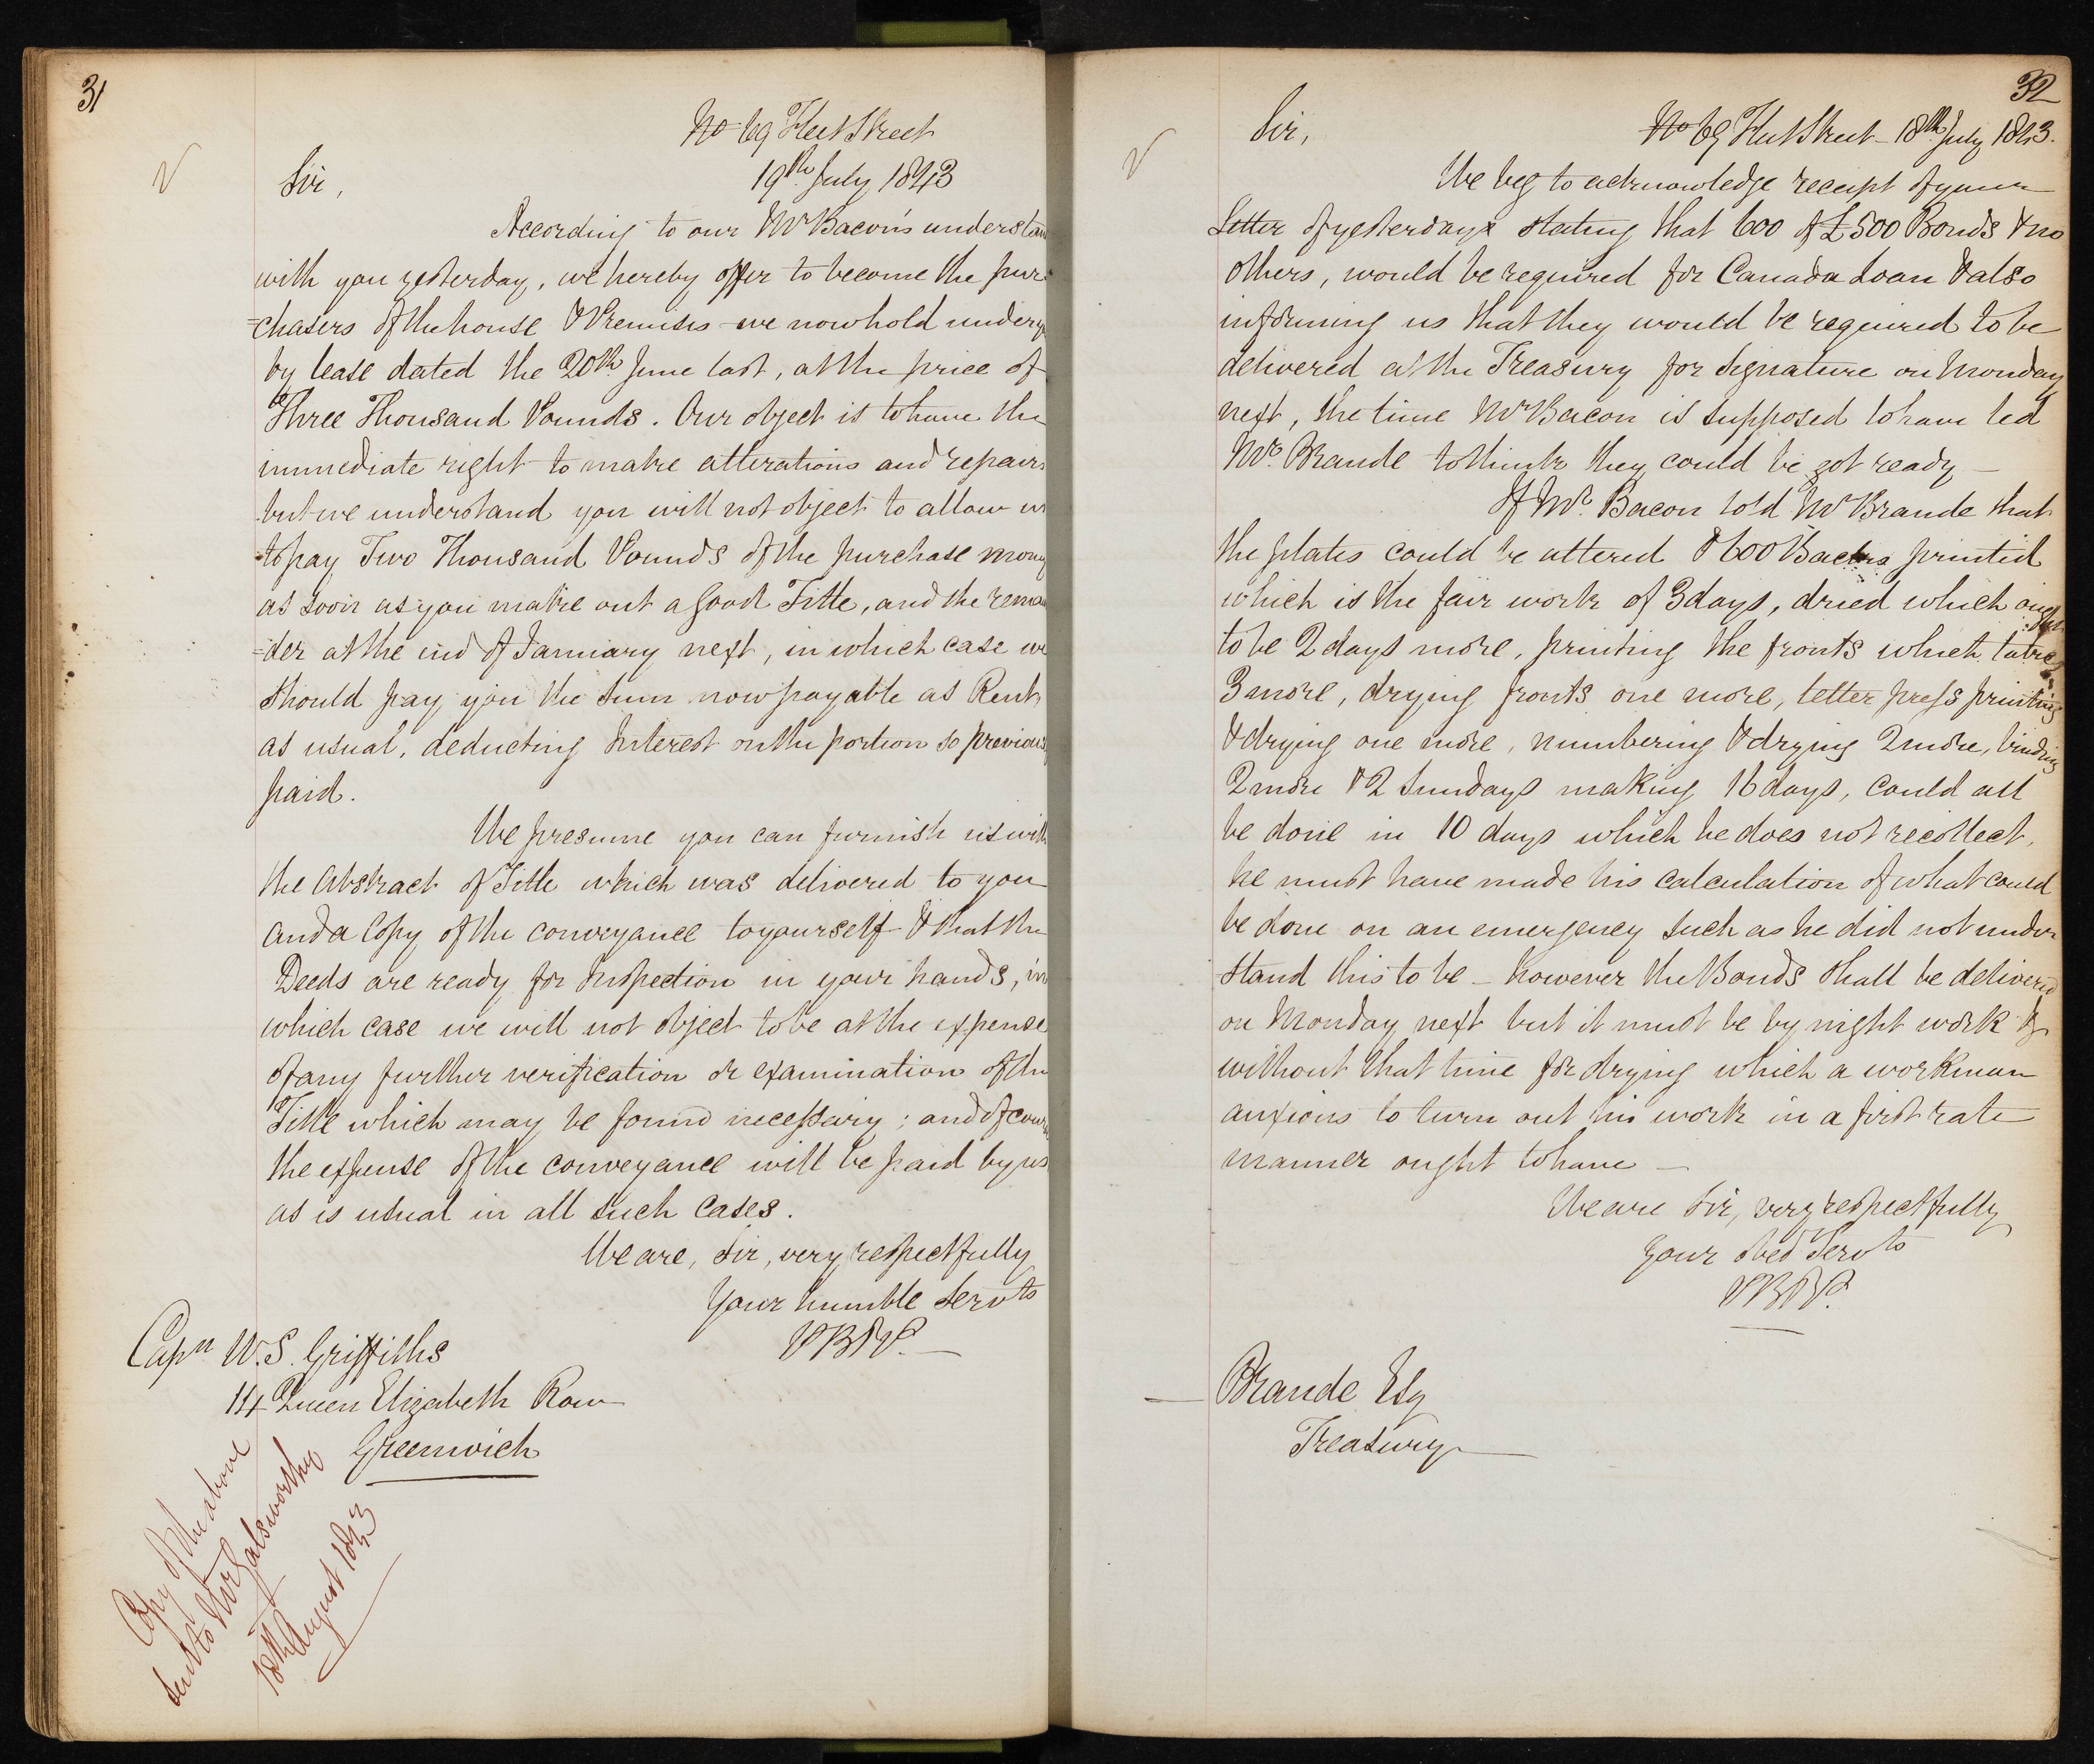 31
No 69 Fleet Street
19th July 1843
Sir,
According to our Mr Bacon's understan
with you yesterday, we hereby offer to become the pur
=chasers of the house & Premises we now hold under y
by lease dated the 20th June last, at the price of
Three Thousand Pounds. Our object is to have the
immediate right to make alterations and repairs
but we understand you will not object to allow us
to pay Two Thousand Pounds of the purchase money
as soon as you make out a good Title, and the remai
=der at the end of January next, in which case we
should pay you the sum now payable as Rent,
as usual, deducting Interest on the portion so previous
paid.
We presume you can furnish us with
the Abstract of Title which was delivered to you
and a Copy of the conveyance to yourself & that the
Deeds are ready for Inspection in your hands, in
which case we will not object to be at the expense
of any further verification or examination of the
Title which may be found necessary; and of cours
the expense of the conveyance will be paid by us
as is usual in all such Cases.
We are, Sir, very respectfully
Your humble Servts
PB&P.
Capn W.S. Griffiths
14 Queen Elizabeth Row
Greenwich
Copy of the above
sent to Mr Galsworthy
18th August 1843
32
No 69 Fleet Street 18th July 1843.
Sir,
We beg to acknowledge receipt of your
letter of yesterday stating that 600 of £500 Bonds & no
others, would be required for Canada Loan & also
informing us that they would be required to be
delivered at the Treasury for Signature on Monday
next, the time Mr Bacon is supposed to have led
Mr. Brande to think they could be got ready
If Mr. Bacon told Mr Brande that
the plates could be altered & 600 Backs printed
which is the fair work of 3 days, dried which ought
to be 2 days more, printing the fronts which takes
3 more, drying fronts one more, letter press printing
& drying one more, numbering & drying 2 more, binding
2 more & 2 Sundays making 16 days, could all
be done in 10 days which he does not recollect,
he must have made his calculation of what could
be done on an emergency such as he did not under
stand this to be – however the Bonds shall be delivered
on Monday next but it must be by night work &
without that time for drying which a workman
anxious to turn out his work in a first rate
manner ought to have —
We are Sir, very respectfully
Your obed Servts
PB&P.
— Brande Esq
Treasury